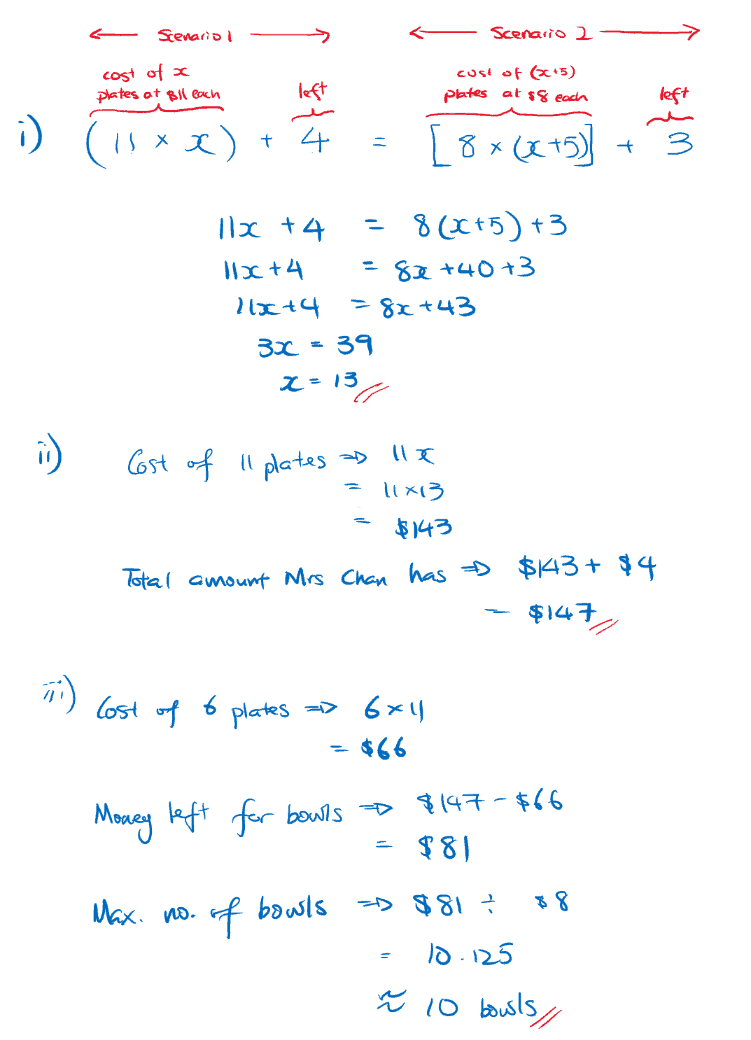 Scenario 1 Scenario 2
cost of x plates at $11 each left cost of (x+5) plates at $8 each left
i) (11 × x) + 4 = [8 × (x+5)] + 3
11x + 4 = 8(x+5) + 3
11x + 4 = 8x + 40 + 3
11x + 4 = 8x + 43
3x = 39
x = 13
ii) Cost of 11 plates ⇒ 11x
= 11×13
= $143
Total amount Mrs Chan has ⇒ $143 + $4
= $147
iii) Cost of 6 plates ⇒ 6×11
= $66
Money left for bowls ⇒ $147 - $66
= $81
Max. no. of bowls ⇒ $81 ÷ $8
= 10.125
≈ 10 bowls